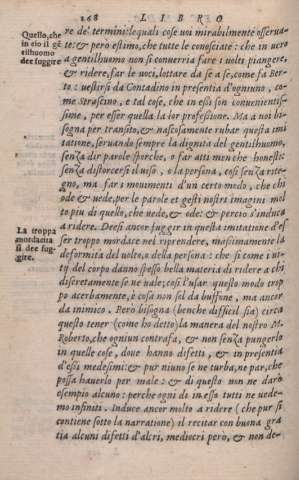 268 LIBRO
re de' termini: lequali cose uoi mirabilmente osserua-
te: & però estimo, che tutte le conosciate: che in uero
a gentilhuomo non si conuerria fare i uolti piangere,
& ridere, far le uoci, lottare da se a se, come fa Ber-
to: uestirsi da Contadino in presentia d'ognuno, co-
me Strascino, e tal cose, che in essi son conuenientis-
sime, per esser quella la lor professione. Ma a noi bi-
sogna per transito, & nascosamente rubar questa imi
tatione, seruando sempre la dignità del gentilhuomo,
senza dir parole sporche, o far atti men che honesti:
senza distorcersi il uiso, o la persona, così senza rite-
gno, ma far i mouimenti d'un certo modo, che chi
ode & uede, per le parole et gesti nostri imagini mol
to piu di quello, che uede, & ode: & perciò s'induca
a ridere. Deesi ancor fuggir in questa imitatione d'es
ser troppo mordace nel riprendere, massimamente la
deformità del uolto, o della persona: che si come i ui-
tij del corpo danno spesso bella materia di ridere a chi
discretamente se ne uale; così l'usar questo modo trop
po acerbamente, è cosa non sol da buffone, ma ancor
da inimico. Però bisogna (benche difficil sia) circa
questo tener (come ho detto) la maniera del nostro M.
Roberto, che ogniun contrafa, & non senza pungerlo
in quelle cose, doue hanno difetti, & in presentia
d'essi medesimi: & pur niuno se ne turba, ne par, che
possa hauerlo per male: & di questo non ne darò
esempio alcuno: perche ogni dì in esso tutti ne uede-
mo infiniti. Induce ancor molto a ridere (che pur si
contiene sotto la narratione) il recitar con buona gra
tia alcuni difetti d'altri, mediocri però, & non de-
Quello, che
in ciò il gē
tilhuomo
dee fuggire
La troppa
mordacità
si dee fug-
gire.